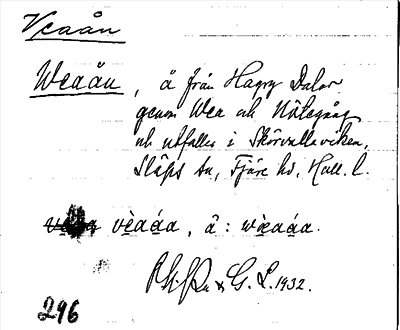 Veaån
Weaån, å från Hagry Dalar
genom Wea och Nötegång
och utfaller i Skörvallaviken,
Släps sn, Fjäre hd, Hall. l.
vèaá̱a, å: wèaá̱a.
& G. L. 1932.
296